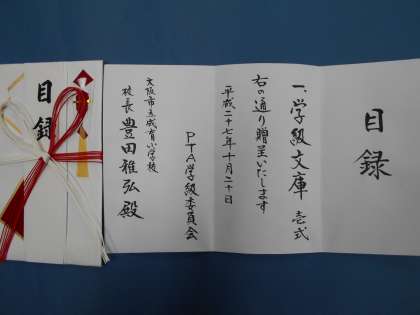 目録
一、学級文庫 壱式
右の通り贈呈いたします
平成二十七年十月二十日
PTA学級委員会
大阪市立成育小学校
校長 豊田雅弘 殿
目録